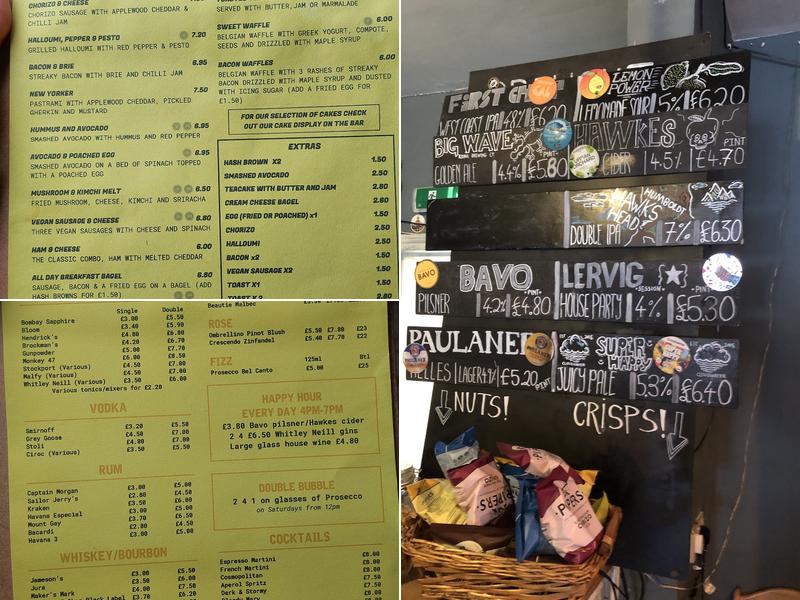 CHORIZO & CHEESE
CHORIZO SAUSAGE WITH APPLEWOOD CHEDDAR &
CHILLI JAM
HALLOUMI, PEPPER & PESTO 7.20
GRILLED HALLOUMI WITH RED PEPPER & PESTO
BACON & BRIE 6.95
STREAKY BACON WITH BRIE AND CHILLI JAM
NEW YORKER 7.50
PASTRAMI WITH APPLEWOOD CHEDDAR, PICKLED
GHERKIN AND MUSTARD
HUMMUS AND AVOCADO 6.95
SMASHED AVOCADO WITH HUMMUS AND RED PEPPER
AVOCADO & POACHED EGG 6.95
SMASHED AVOCADO ON A BED OF SPINACH TOPPED
WITH A POACHED EGG
MUSHROOM & KIMCHI MELT 6.50
FRIED MUSHROOM, CHEESE, KIMCHI AND SRIRACHA
VEGAN SAUSAGE & CHEESE 6.80
THREE VEGAN SAUSAGES WITH CHEESE AND SPINACH
HAM & CHEESE 6.00
THE CLASSIC COMBO, HAM WITH MELTED CHEDDAR
ALL DAY BREAKFAST BAGEL 6.80
SAUSAGE, BACON & A FRIED EGG ON A BAGEL (ADD
HASH BROWNS FOR £1.50)
SERVED WITH BUTTER, JAM OR MARMALADE
SWEET WAFFLE 6.00
BELGIAN WAFFLE WITH GREEK YOGURT, COMPOTE,
SEEDS AND DRIZZLED WITH MAPLE SYRUP
BACON WAFFLES 6.00
BELGIAN WAFFLE WITH 3 RASHES OF STREAKY
BACON DRIZZLED WITH MAPLE SYRUP AND DUSTED
WITH ICING SUGAR (ADD A FRIED EGG FOR
£1.50)
FOR OUR SELECTION OF CAKES CHECK
OUT OUR CAKE DISPLAY ON THE BAR
EXTRAS
HASH BROWN X2 1.50
SMASHED AVOCADO 2.50
TEACAKE WITH BUTTER AND JAM 2.80
CREAM CHEESE BAGEL 2.60
EGG (FRIED OR POACHED) x1 1.50
CHORIZO 2.50
HALLOUMI 2.50
BACON x2 1.50
VEGAN SAUSAGE X2 2.50
TOAST X1 1.50
TOAST X2 2.80
Single Double
Bombay Sapphire £3.00 £5.50
Bloom £3.40 £5.90
Hendrick's £4.00 £6.80
Brockman's £4.20 £6.70
Gunpowder £5.00 £7.70
Monkey 47 £6.00 £8.50
Stockport (Various) £4.50 £7.00
Malfy (Various) £4.50 £7.00
Whitley Neill (Various) £3.50 £6.00
Various tonics/mixers for £2.20
VODKA
Smirnoff £3.20 £5.50
Grey Goose £4.50 £7.50
Stoli £4.00 £7.00
Ciroc (Various) £3.50 £5.50
RUM
Captain Morgan £3.00 £5.00
Sailor Jerry's £2.80 £4.50
Kraken £3.50 £6.00
Havana Especial £3.00 £5.00
Mount Gay £3.70 £6.50
Bacardi £2.80 £4.50
Havana 3 £3.00 £5.00
WHISKEY/BOURBON
Jameson's £3.00 £5.50
Jura £4.00 £7.00
Maker's Mark £3.50 £7.50
Black Label £3.70 £6.20
Beautie Malbec
ROSE
Umbrellino Pinot Blush £5.50 £7.80 £23
Crescendo Zinfandel £5.40 £7.70 £22
FIZZ 125ml Btl
Prosecco Bel Canto £5.00 £25
HAPPY HOUR
EVERY DAY 4PM-7PM
£3.80 Bavo pilsner/Hawkes cider
2 4 £6.50 Whitley Neill gins
Large glass house wine £4.80
DOUBLE BUBBLE
2 4 1 on glasses of Prosecco
on Saturdays from 12pm
COCKTAILS
Espresso Martini £8.00
French Martini £8.00
Cosmopolitan £8.00
Aperol Spritz £7.50
Dark & Stormy £7.50
Bloody Mary £8.00
FIRST
WEST COAST IPA 4.8% £6.20
LEMON
POWER
LEMONADE SOUR 5% £6.20
BIG WAVE
KONA BREWING CO
GOLDEN ALE 4.4% PINT £5.60
HAWKES
CIDER 4.5% PINT £4.70
HAWKS
HEAD
HUMBOLDT
DOUBLE IPA 7% £6.30
BAVO
BAVO
PILSNER 4.2% PINT £4.80
LERVIG
HOUSE PARTY SESSION 4% PINT £5.30
PAULANER
HELLES LAGER 4.9% £5.20 PINT
SUPER
HAPPY
JUICY PALE 5.3% £6.40
NUTS!
CRISPS!
PIPERS
PIPERS